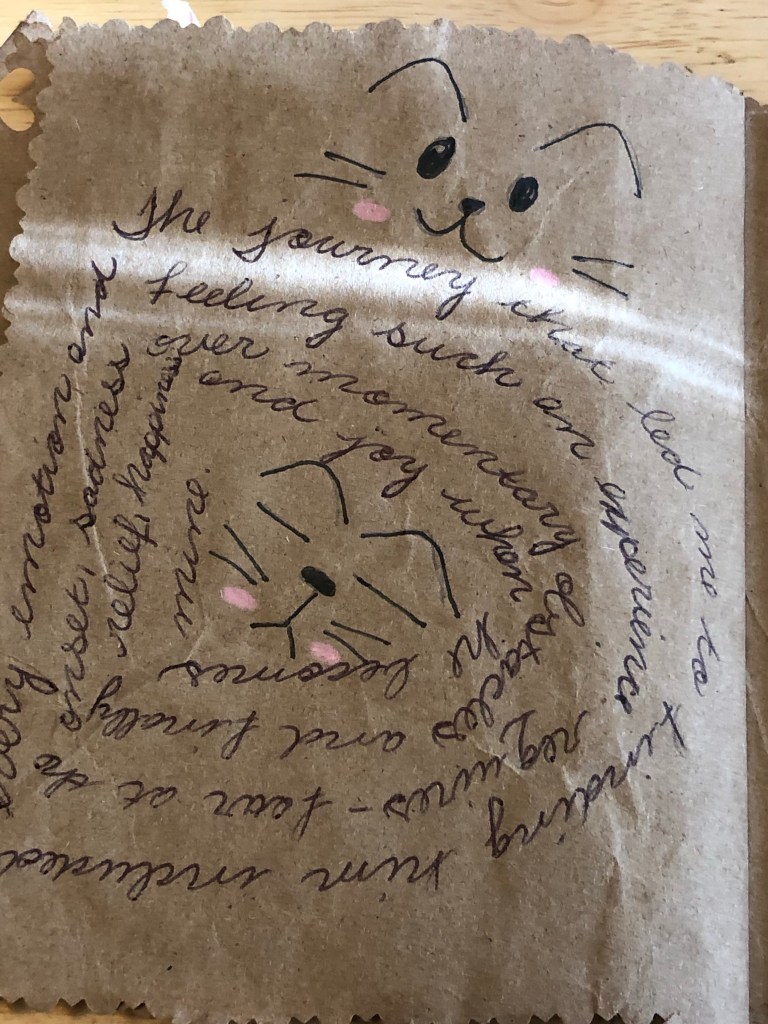 The Journey that led me to
finding him included
every emotion and
feeling such an experience
requires - fear at the
onset, sadness
over momentary obstacles
and finally
relief, happiness
and joy when he
becomes
mine.